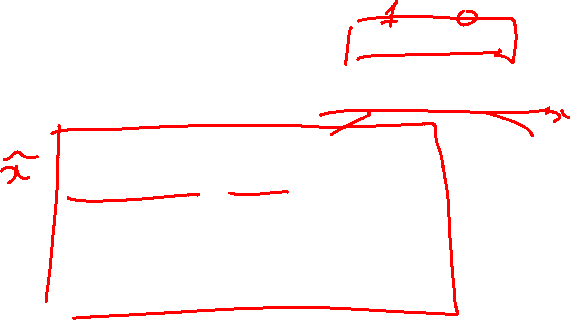 1 0
x
x̃